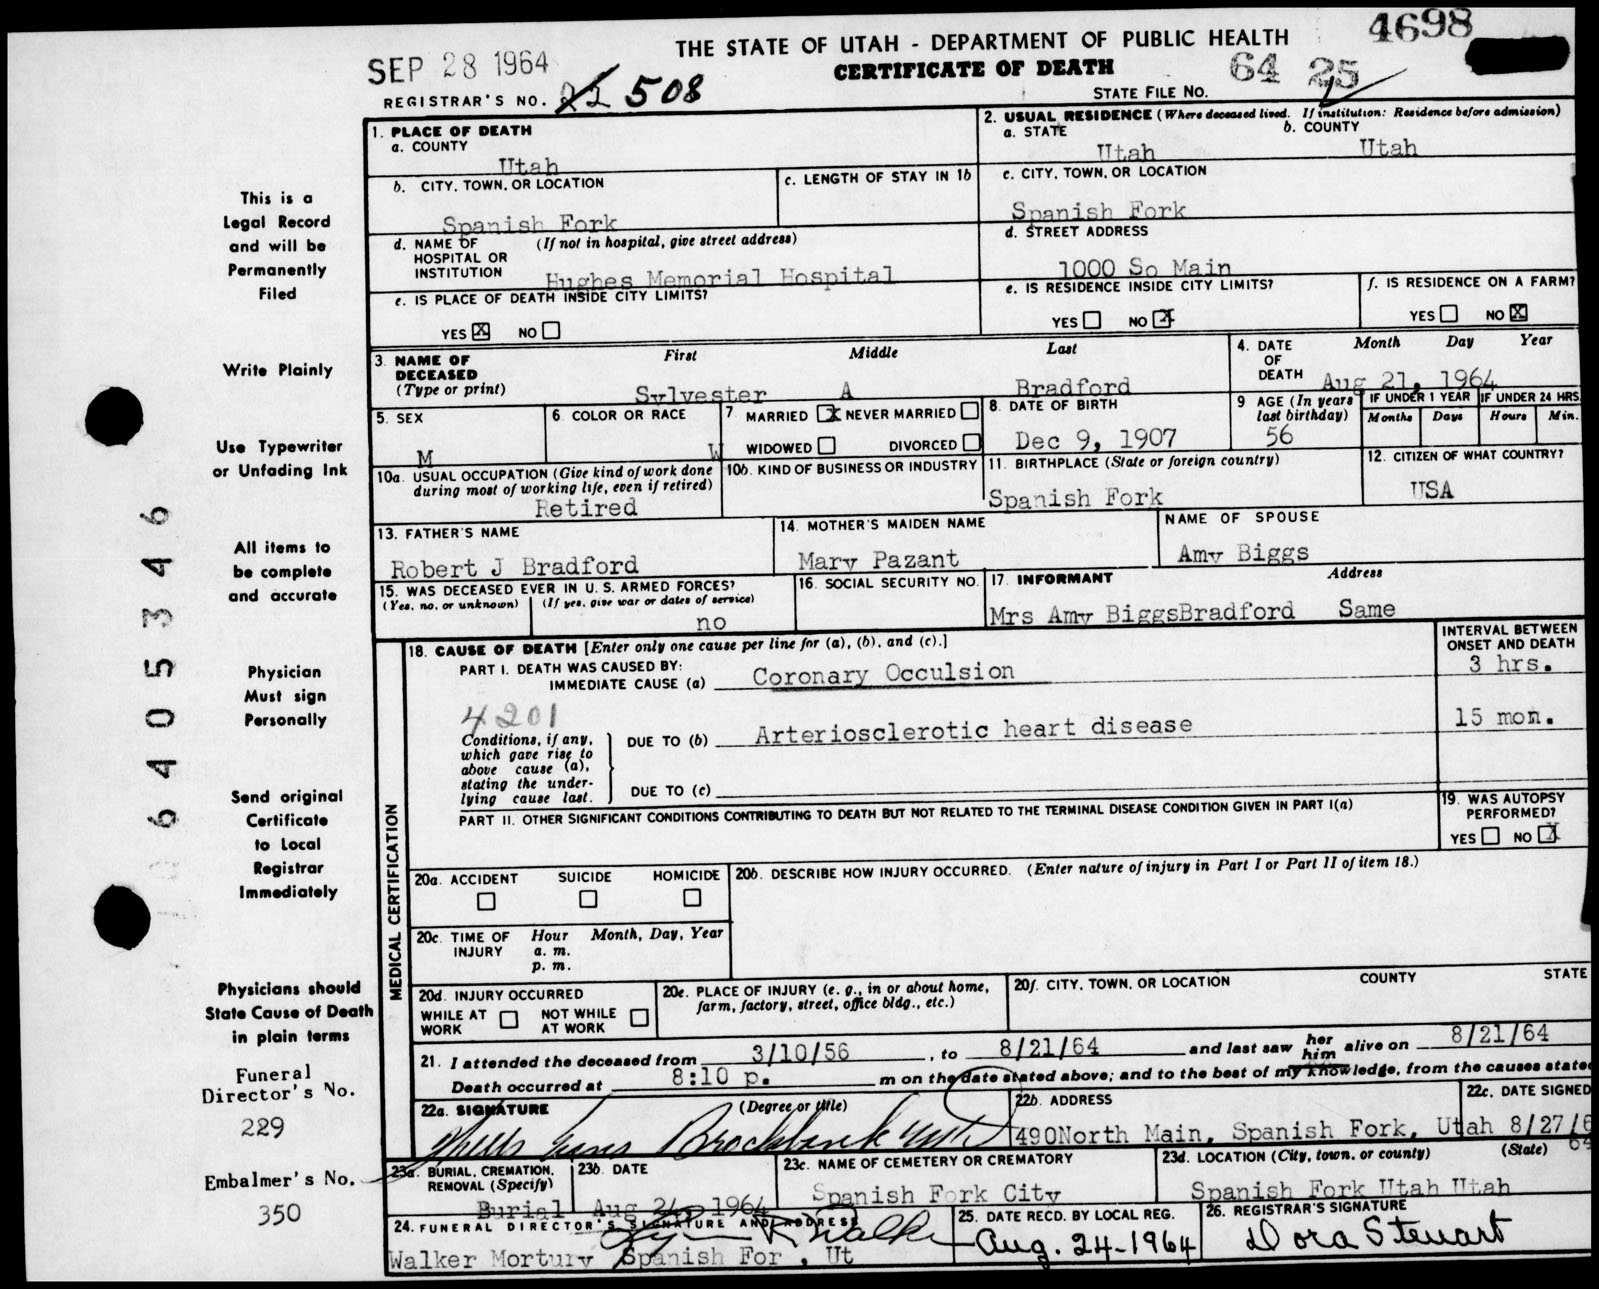 4698
THE STATE OF UTAH - DEPARTMENT OF PUBLIC HEALTH
SEP 28 1964
CERTIFICATE OF DEATH
64 25
REGISTRAR'S NO. 508
STATE FILE NO.
1. PLACE OF DEATH
a. COUNTY
Utah
2. USUAL RESIDENCE (Where deceased lived. If institution: Residence before admission)
a. STATE b. COUNTY
Utah Utah
b. CITY, TOWN, OR LOCATION
Spanish Fork
c. LENGTH OF STAY IN 1b
c. CITY, TOWN, OR LOCATION
Spanish Fork
d. NAME OF (If not in hospital, give street address)
HOSPITAL OR
INSTITUTION
Hughes Memorial Hospital
d. STREET ADDRESS
1000 So Main
e. IS PLACE OF DEATH INSIDE CITY LIMITS?
YES X NO
e. IS RESIDENCE INSIDE CITY LIMITS?
YES NO X
f. IS RESIDENCE ON A FARM?
YES NO X
3. NAME OF First Middle Last
DECEASED
(Type or print)
Sylvester A Bradford
4. DATE Month Day Year
OF
DEATH Aug 21, 1964
5. SEX
M
6. COLOR OR RACE
W
7 MARRIED X NEVER MARRIED
WIDOWED DIVORCED
8. DATE OF BIRTH
Dec 9, 1907
9 AGE (In years
last birthday)
56
IF UNDER 1 YEAR
Months Days
IF UNDER 24 HRS
Hours Min.
10a. USUAL OCCUPATION (Give kind of work done
during most of working life, even if retired)
Retired
10b. KIND OF BUSINESS OR INDUSTRY
11. BIRTHPLACE (State or foreign country)
Spanish Fork
12. CITIZEN OF WHAT COUNTRY?
USA
13. FATHER'S NAME
Robert J Bradford
14. MOTHER'S MAIDEN NAME
Mary Pazant
NAME OF SPOUSE
Amy Biggs
15. WAS DECEASED EVER IN U. S. ARMED FORCES?
(Yes, no, or unknown) (If yes, give war or dates of service)
no
16. SOCIAL SECURITY NO.
17. INFORMANT Address
Mrs Amy BiggsBradford Same
MEDICAL CERTIFICATION
18. CAUSE OF DEATH [Enter only one cause per line for (a), (b), and (c).]
PART I. DEATH WAS CAUSED BY:
IMMEDIATE CAUSE (a) Coronary Occulsion
INTERVAL BETWEEN
ONSET AND DEATH
3 hrs.
4201
Conditions, if any,
which gave rise to
above cause (a),
stating the under-
lying cause last.
DUE TO (b) Arteriosclerotic heart disease
15 mon.
DUE TO (c)
PART II. OTHER SIGNIFICANT CONDITIONS CONTRIBUTING TO DEATH BUT NOT RELATED TO THE TERMINAL DISEASE CONDITION GIVEN IN PART I(a)
19. WAS AUTOPSY
PERFORMED?
YES NO X
20a. ACCIDENT SUICIDE HOMICIDE
20b. DESCRIBE HOW INJURY OCCURRED. (Enter nature of injury in Part I or Part II of item 18.)
20c. TIME OF Hour Month, Day, Year
INJURY a. m.
p. m.
20d. INJURY OCCURRED
WHILE AT NOT WHILE
WORK AT WORK
20e. PLACE OF INJURY (e. g., in or about home,
farm, factory, street, office bldg., etc.)
20f. CITY, TOWN, OR LOCATION COUNTY STATE
21. I attended the deceased from 3/10/56, to 8/21/64 and last saw her him alive on 8/21/64
Death occurred at 8:10 p. m on the date stated above; and to the best of my knowledge, from the causes stated
22a. SIGNATURE (Degree or title)
Brockbank
22b. ADDRESS
490North Main, Spanish Fork, Utah
22c. DATE SIGNED
8/27/6
64
23a. BURIAL, CREMATION,
REMOVAL (Specify)
Burial
23b. DATE
Aug 24, 1964
23c. NAME OF CEMETERY OR CREMATORY
Spanish Fork City
23d. LOCATION (City, town, or county) (State)
Spanish Fork Utah Utah
24. FUNERAL DIRECTOR'S SIGNATURE AND ADDRESS
Walker
Walker Mortury Spanish For , Ut
25. DATE RECD. BY LOCAL REG.
Aug. 24-1964
26. REGISTRAR'S SIGNATURE
Dora Stewart
This is a
Legal Record
and will be
Permanently
Filed
Write Plainly
Use Typewriter
or Unfading Ink
All items to
be complete
and accurate
Physician
Must sign
Personally
Send original
Certificate
to Local
Registrar
Immediately
Physicians should
State Cause of Death
in plain terms
Funeral
Director's No.
229
Embalmer's No.
350
6405346